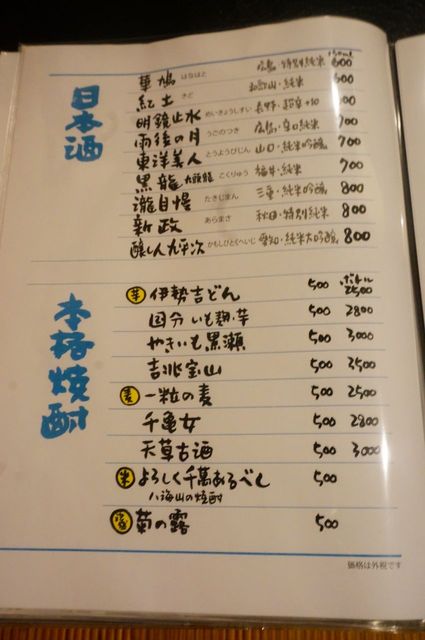 日本酒
華鳩 はなはと 広島・特別純米 600
紀土 きど 和歌山・純米 600
明鏡止水 めいきょうしすい 長野・超辛+10 700
雨後の月 うごのつき 広島・辛口純米 700
東洋美人 とうようびじん 山口・純米吟醸 700
黒龍 九頭龍 こくりゅう 福井・純米 700
瀧自慢 たきじまん 三重・純米吟醸 800
新政 あらまさ 秋田・特別純米 800
醸し人九平次 かもしびとくへいじ 愛知・純米大吟醸 800
本格焼酎
ボトル
芋 伊勢吉どん 500 2500
国分 いも麹・芋 500 2800
やきいも黒瀬 500 3000
吉兆宝山 500 3500
麦 一粒の麦 500 2500
千亀女 500 2800
天草古酒 500 3000
米 よろしく千萬あるべし 500
八海山の焼酎
菊の露 500
価格は外税です